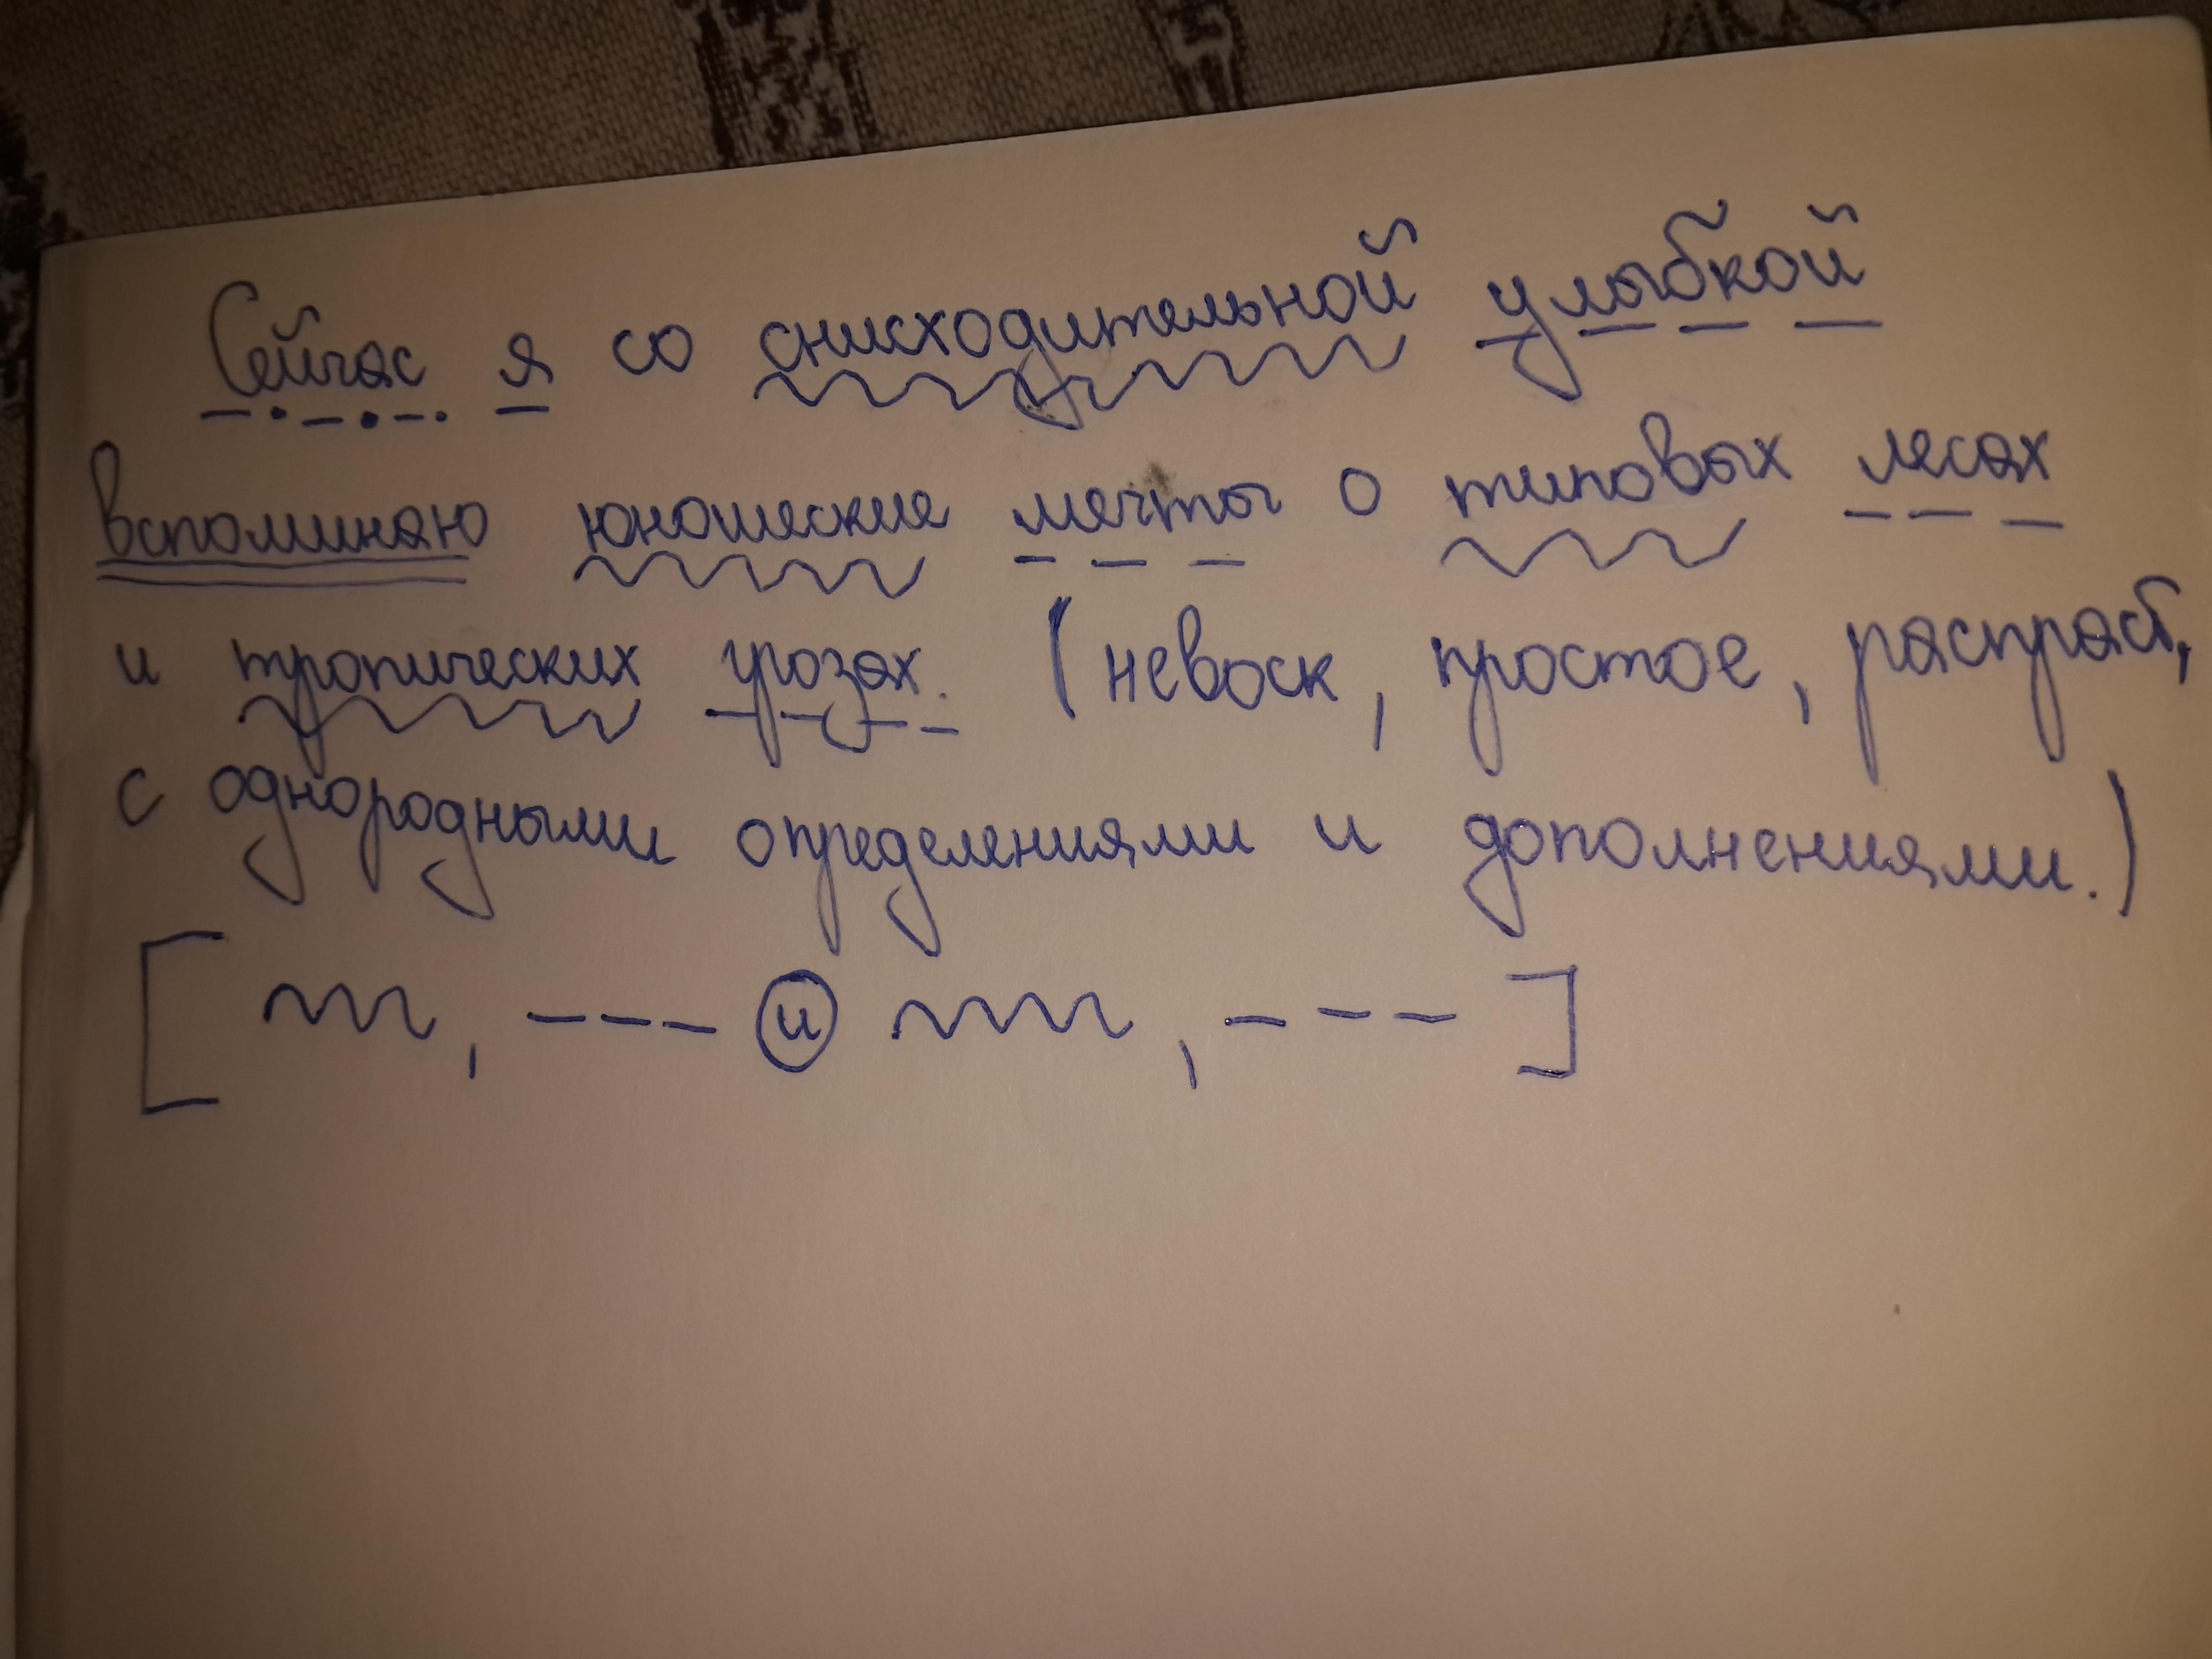 Сейчас я со снисходительной улыбкой
вспоминаю юношеские мечты о типовых лесах
и тропических грозах. (невоск, простое, распраст,
с однородными определениями и дополнениями.)
[ , --- и , --- ]